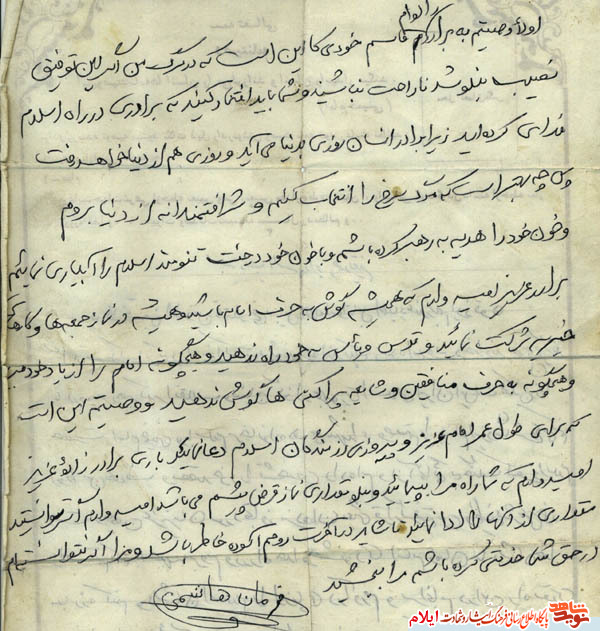 گرام
اولاً وصیتم به برادرم قاسم خودی کا این است که در مرگ من اگر این توفیق
نصیب بنلو شد ناراحت نباشید و شما باید افتخار کنید که برادری در راه اسلام
فدای کرده اید زیرا برادر انسان روزی بدنیا می آید و روزی هم از دنیا خواهد رفت
پس چه بهتر است که مرگ سرخ را انتخاب کنیم و شرافتمندانه از دنیا بروم
و خون خود را هدیه به رهبر کرده باشم و با خون خود درخت تنومند اسلام را آبیاری نمائیم
برادر عزیز امید وارم که همیشه گوش به حرف امام باشید و همیشه در نماز جمعه ها و کارهای
خیریه شرکت نمائید و ترس و یأس به خود راه ندهید و هیچگونه امام را از یاد خود نبرید
و هیچگونه به حرف منافقین و شایعه پراکنی ها گوش ندهید و وصیتم این است
که برای طول عمر امام عزیز و پیروزی رزمندگان اسلام دعا نمائید باری برادر زاده عزیز
امیدوارم که شما راه مرا بپیمائید و بنلو مقداری نماز قرض پسرم می باشد امید وارم اگر توانستید
مقداری از آنها را ادا نمائید تا شاید در آخرت روحم آسوده خاطر باشد و مرا اگر نتوانستم
در حق شما خدمتی کرده باشم مرا ببخشید
فرمان هاشمی
نوید شاهد
پایگاه اطلاع رسانی فرهنگ ایثار و شهادت ایلام